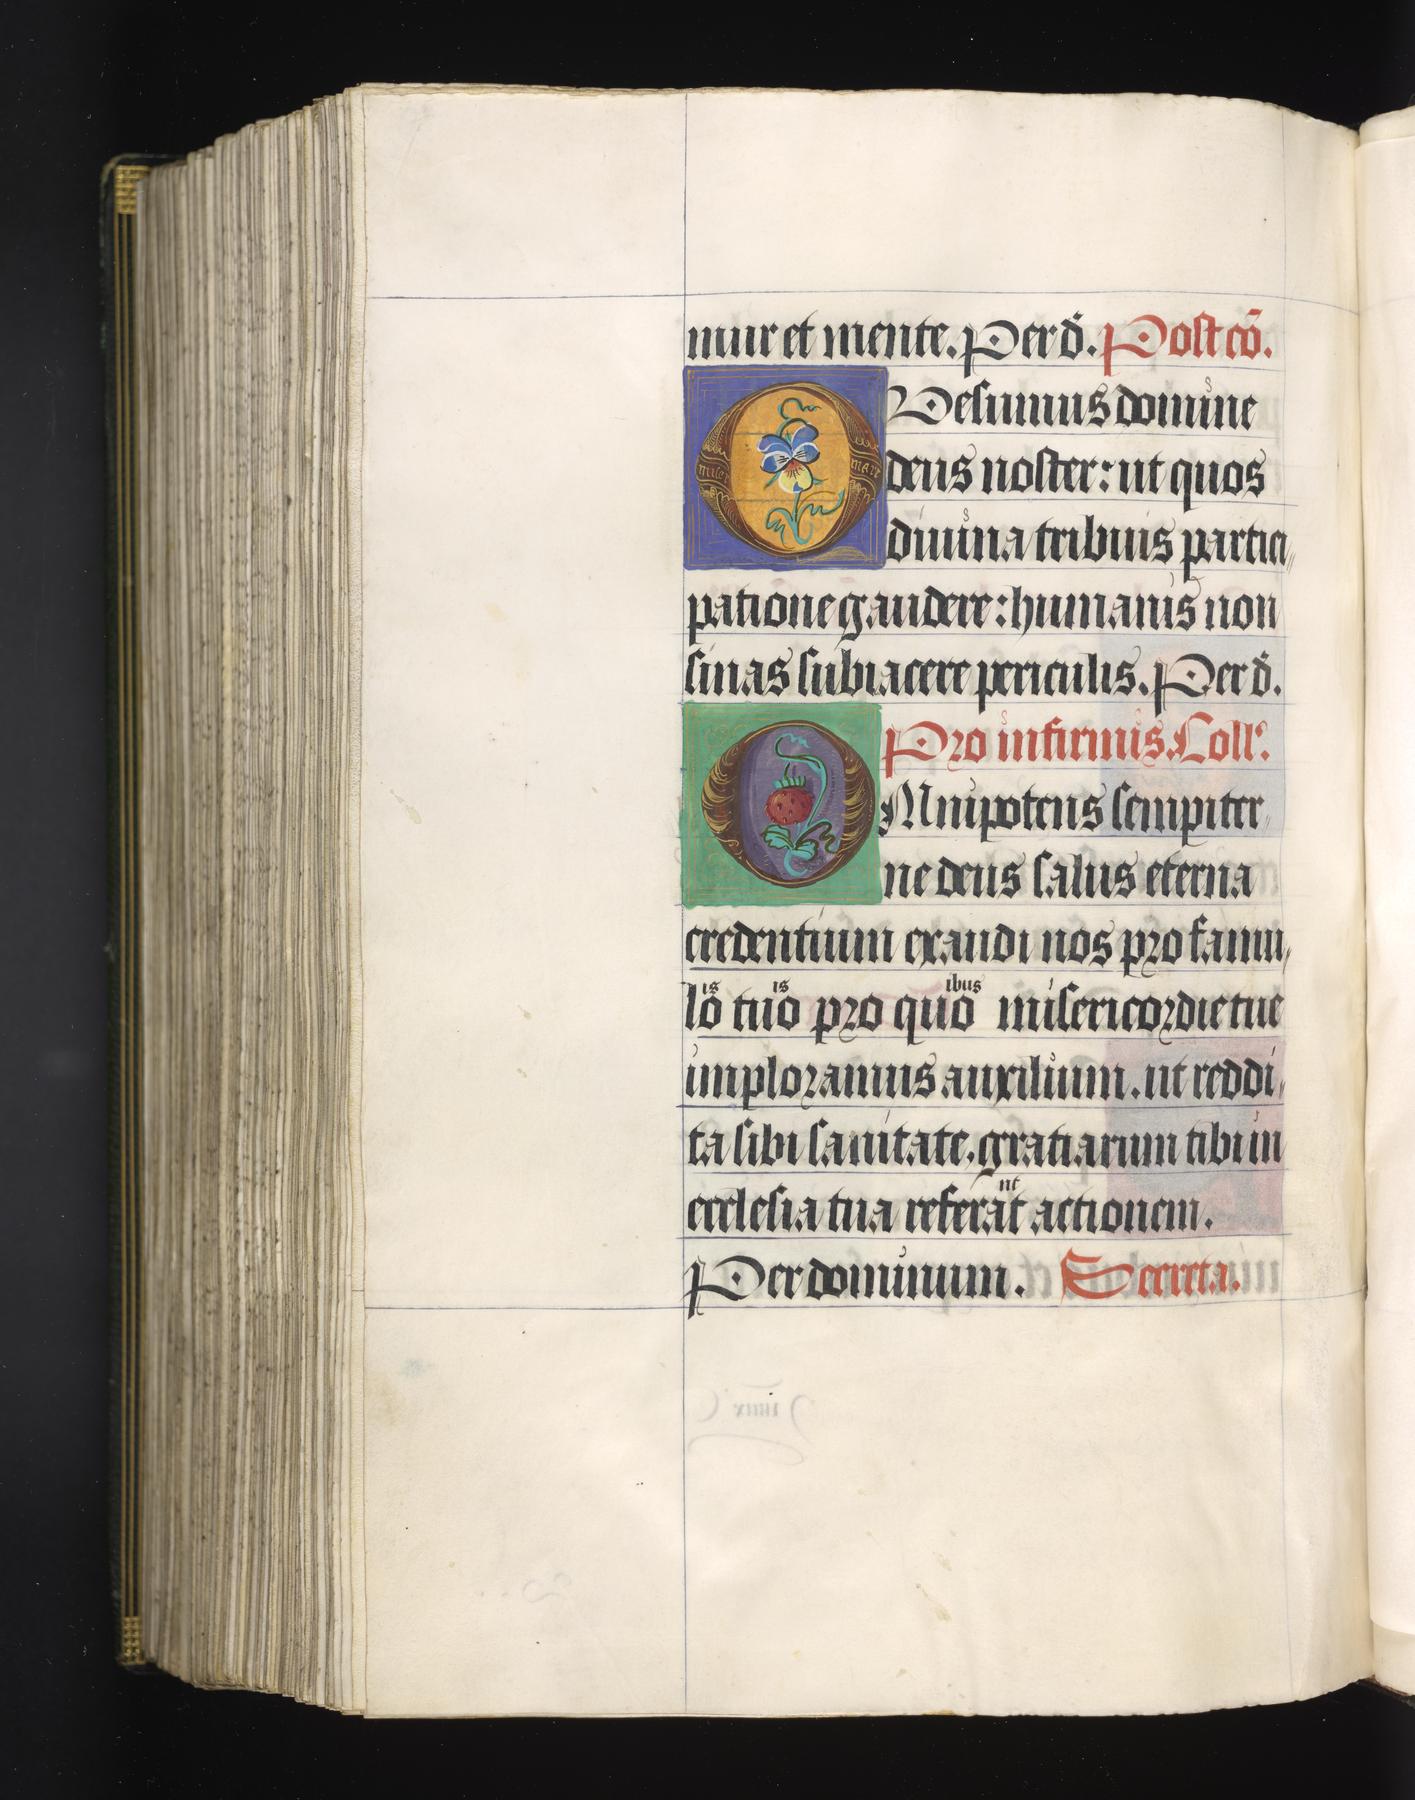 mur et mente. Per d̄. Post cō.
Quesumus domine
deus noster: ut quos
diuina tribuis partici
patione gaudere: humanis non
sinas subiacere periculis. Per d̄.
Pro infirmis. Coll'.
OMnipotens sempiter
ne deus salus eterna
credentium exaudi nos pro famu
lo is tuo is pro quo ibus misericordie tue
imploramus auxilium. ut reddi
ta sibi sanitate. gratiarum tibi in
ecclesia tua referat nt actionem.
Per dominum. Secreta.